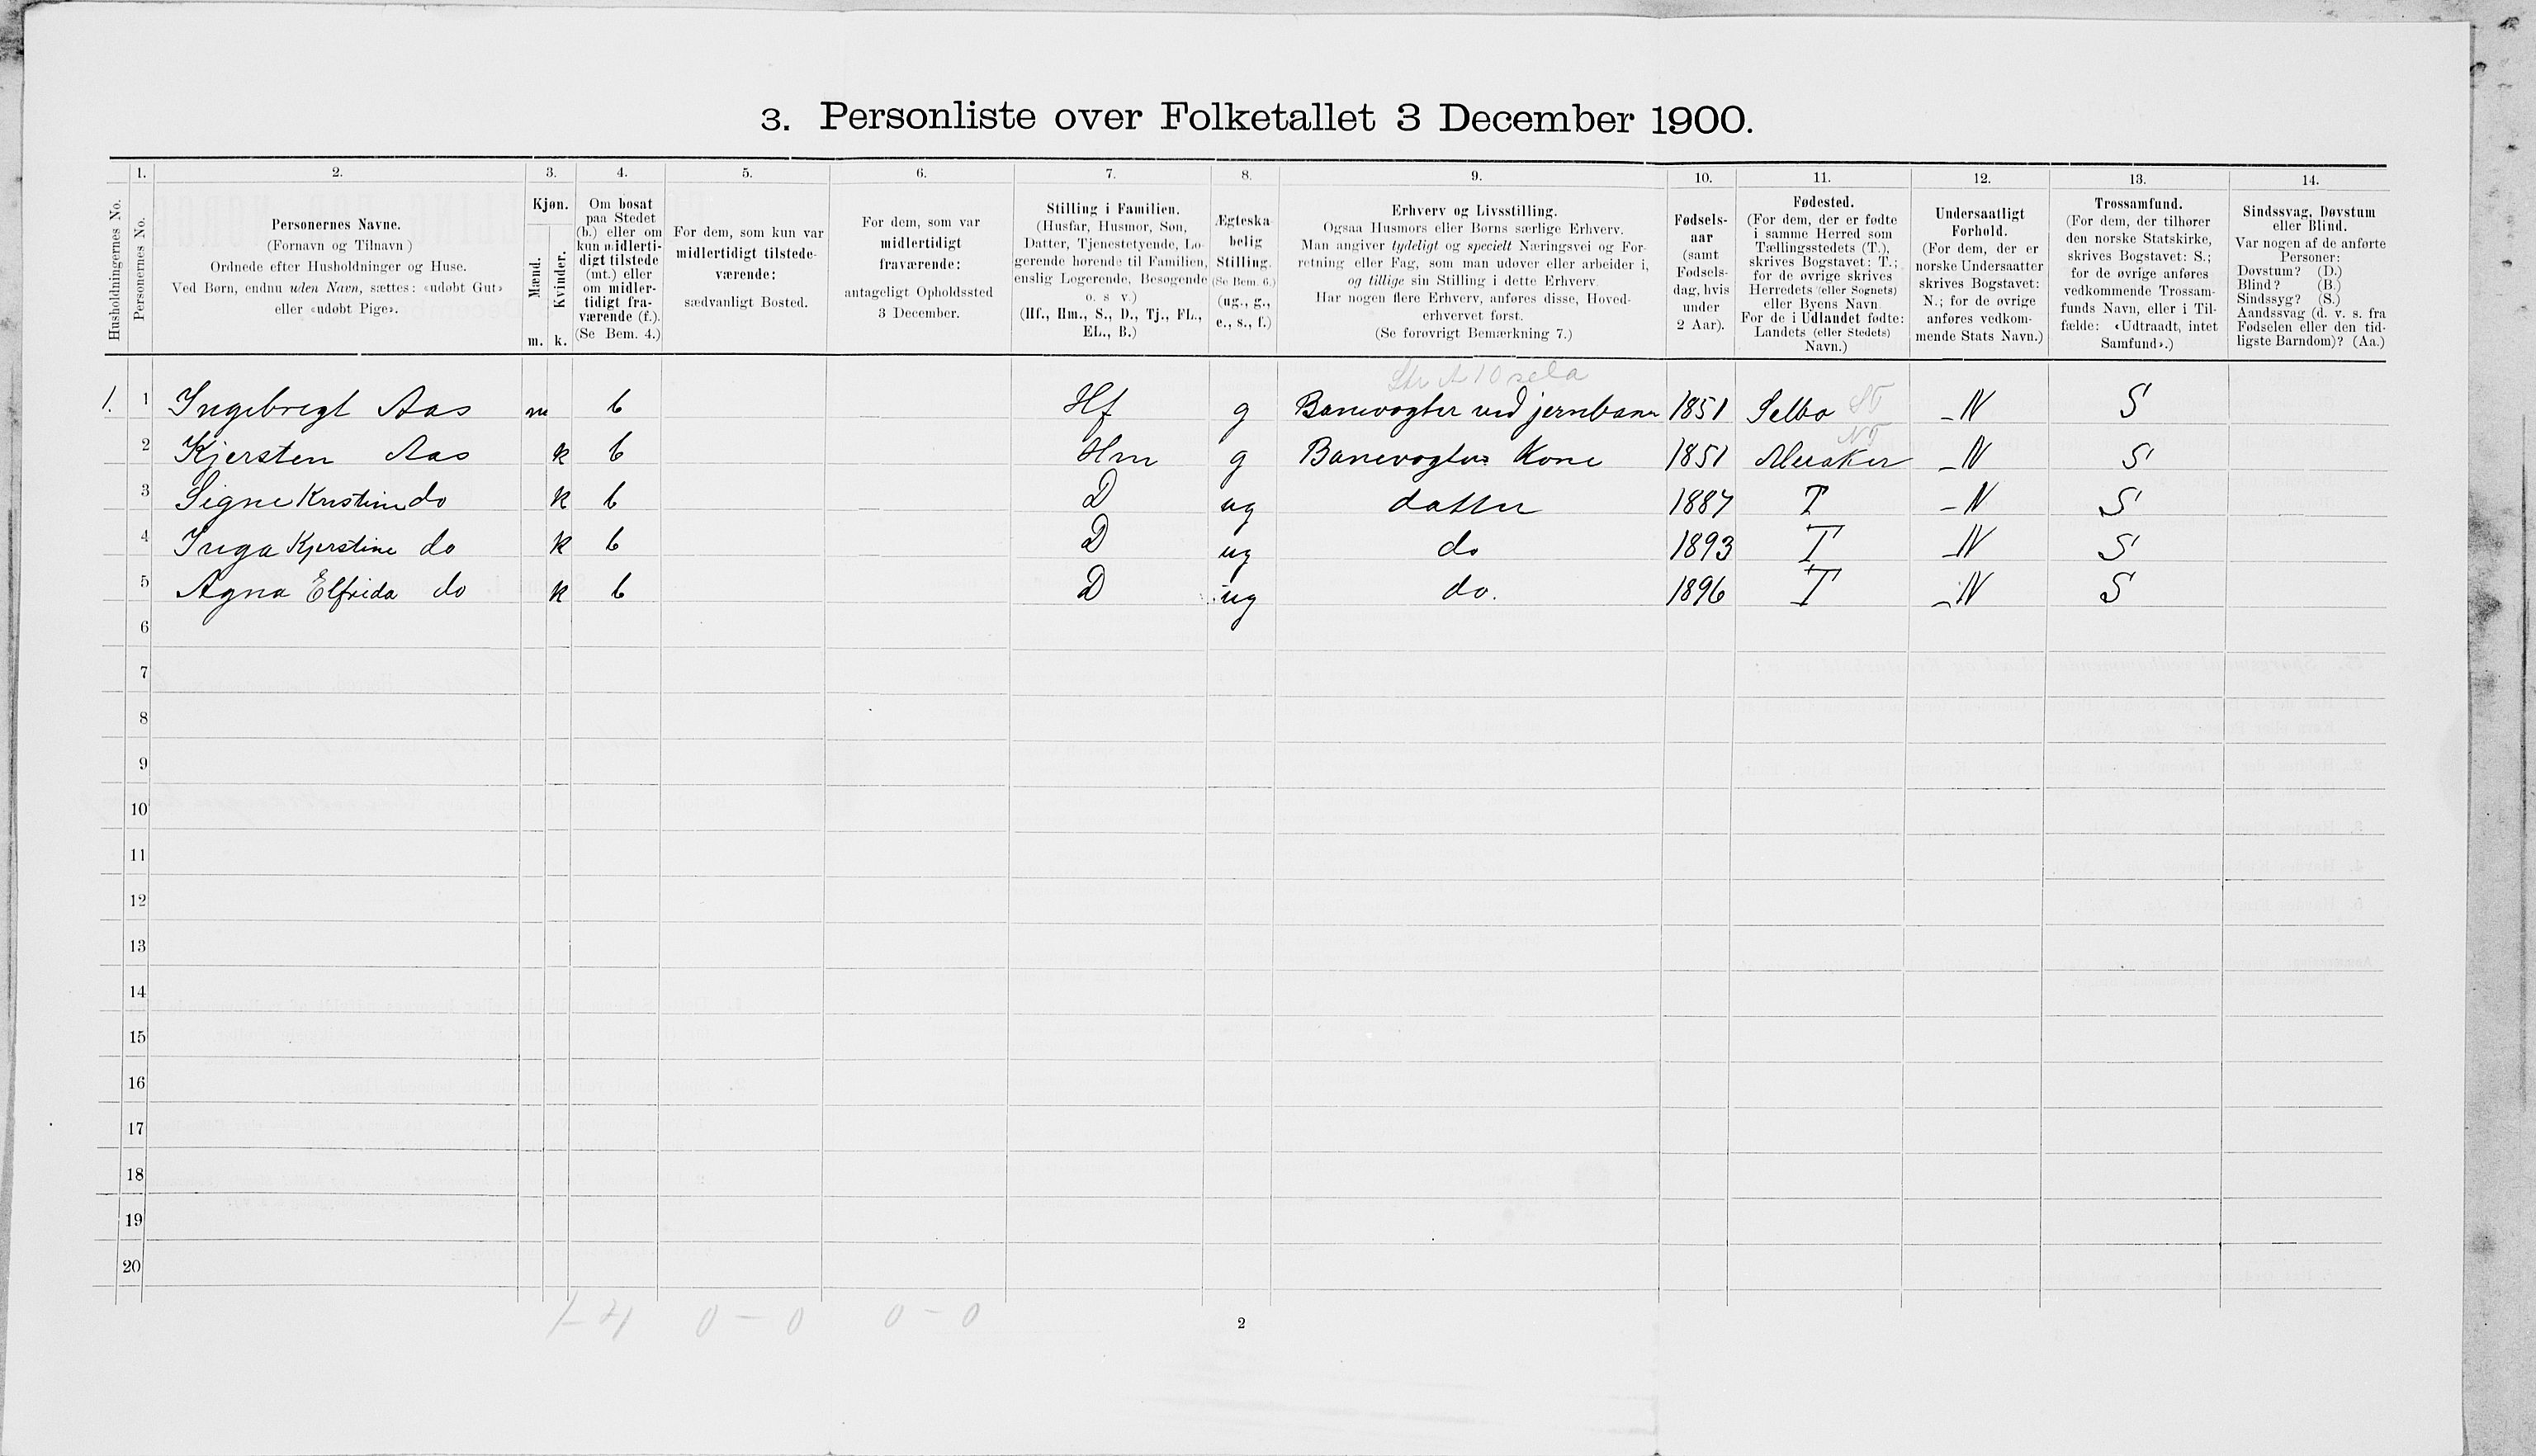 3. Personliste over Folketallet 3 December 1900.
Husholdningernes No.
1.
Personernes No.
2.
Personernes Navne.
(Fornavn og Tilnavn)
Ordnede efter Husholdninger og Huse.
Ved Børn, endnu uden Navn, sættes: «udøbt Gut»
eller «udøbt Pige».
3.
Kjøn.
Mænd.
Kvinder.
m. k.
4.
Om bosat
paa Stedet
(b.) eller om
kun midlerti-
digt tilstede
(mt.) eller
om midler-
tidigt fra-
værende (f.).
(Se Bem. 4.)
5.
For dem, som kun var
midlertidigt tilstede-
værende:
sædvanligt Bosted.
6.
For dem, som var
midlertidigt
fraværende:
antageligt Opholdssted
3 December.
7.
Stilling i Familien.
(Husfar, Husmor, Søn,
Datter, Tjenestetyende, Lo-
gerende hørende til Familien,
enslig Logerende, Besøgende
o. s v.)
(Hf., Hm., S., D., Tj., FL.,
EL., B.)
8.
Ægteska-
belig
Stilling.
(Se Bem. 6.)
(ug., g.,
e., s., f.)
9.
Erhverv og Livsstilling.
Ogsaa Husmors eller Børns særlige Erhverv.
Man angiver tydeligt og specielt Næringsvei og For-
retning eller Fag, som man udøver eller arbeider i,
og tillige sin Stilling i dette Erhverv.
Har nogen flere Erhverv, anføres disse, Hoved-
erhvervet først.
(Se forøvrigt Bemærkning 7.)
10.
Fødsels-
aar
(samt
Fødsels-
dag, hvis
under
2 Aar).
11.
Fødested.
(For dem, der er fødte
i samme Herred som
Tællingsstedets (T.),
skrives Bogstavet: T.;
for de øvrige skrives
Herredets (eller Sognets)
eller Byens Navn.
For de i Udlandet fødte:
Landets (eller Stedets)
Navn.)
12.
Undersaatligt
Forhold.
(For dem, der er
norske Undersaatter
skrives Bogstavet:
N.; for de øvrige
anføres vedkom-
mende Stats Navn.)
13.
Trossamfund.
(For dem, der tilhører
den norske Statskirke,
skrives Bogstavet: S.;
for de øvrige anføres
vedkommende Trossam-
funds Navn, eller i Til-
fælde: «Udtraadt, intet
Samfund».)
14.
Sindssvag, Døvstum
eller Blind.
Var nogen af de anførte
Personer:
Døvstum? (D.)
Blind? (B.)
Sindssyg? (S.)
Aandssvag (d. v. s. fra
Fødselen eller den tid-
ligste Barndom)? (Aa.)
1. 1 Ingebregt Aas m b Hf g Banevogter ved jernbanen 1851 Selbo ST N S
NT
2 Kjersten Aas k b Hm g Banevogters Kone 1851 Meraker N S
3 Signe Kristine do k b D ug datter 1887 T N S
4 Inga Kjerstine do k b D ug do 1893 T N S
5 Agna Elfrida do k b D ug do. 1896 T N S
6
7
8
9
10
11
12
13
14
15
16
17
18
19
20
1-4 0 - 0 0 - 0
2